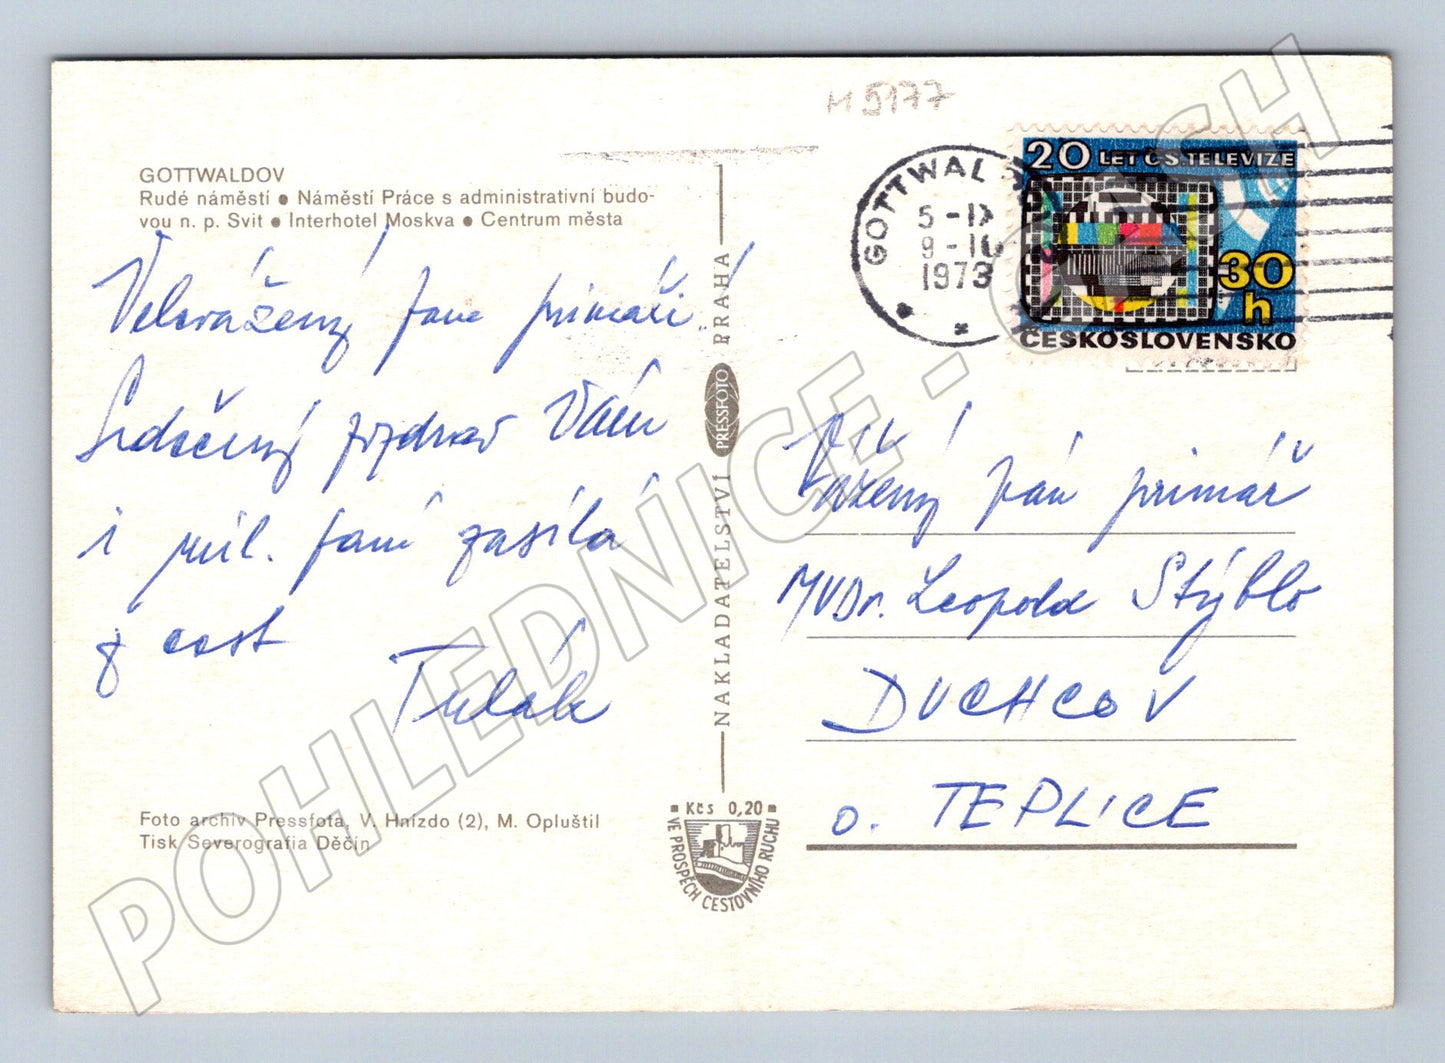 M 5177
GOTTWALDOV
Rudé náměstí • Náměstí Práce s administrativní budo-
vou n. p. Svit • Interhotel Moskva • Centrum města
Velevážený pane primáři!
Srdečný pozdrav Vám
i mil. paní zasílá
z cest
Tulák
Foto archiv Pressfota, V. Hnízdo (2), M. Opluštil
Tisk Severografia Děčín
NAKLADATELSTVÍ PRESSFOTO PRAHA
Kčs 0,20
VE PROSPĚCH CESTOVNÍHO RUCHU
GOTTWALDOV
5-IX
9-10
1973
20 LET ČS. TELEVIZE
30
h
ČESKOSLOVENSKO
Vážený pán primář
MVDr. Leopold Stýblo
DUCHCOV
o. TEPLICE
POHLEDNICE - CZ SH